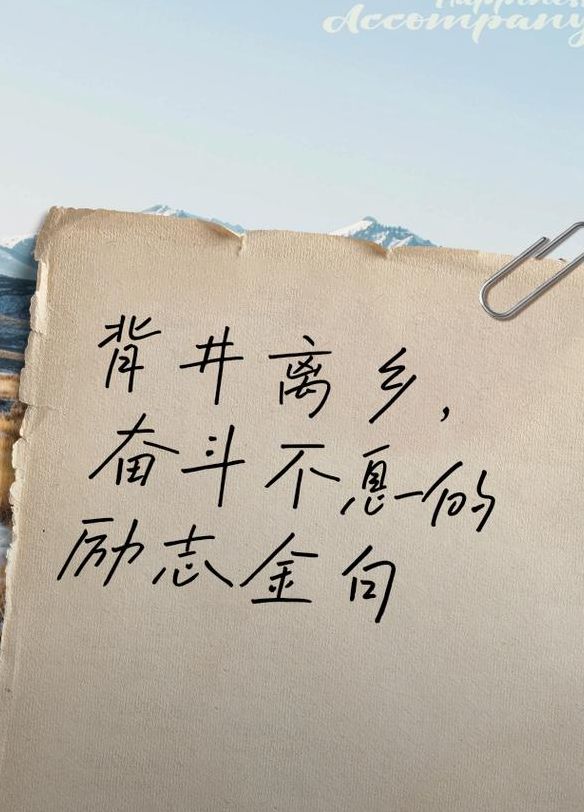 Happiness
Accompany
背井离乡,
奋斗不息的
励志金句